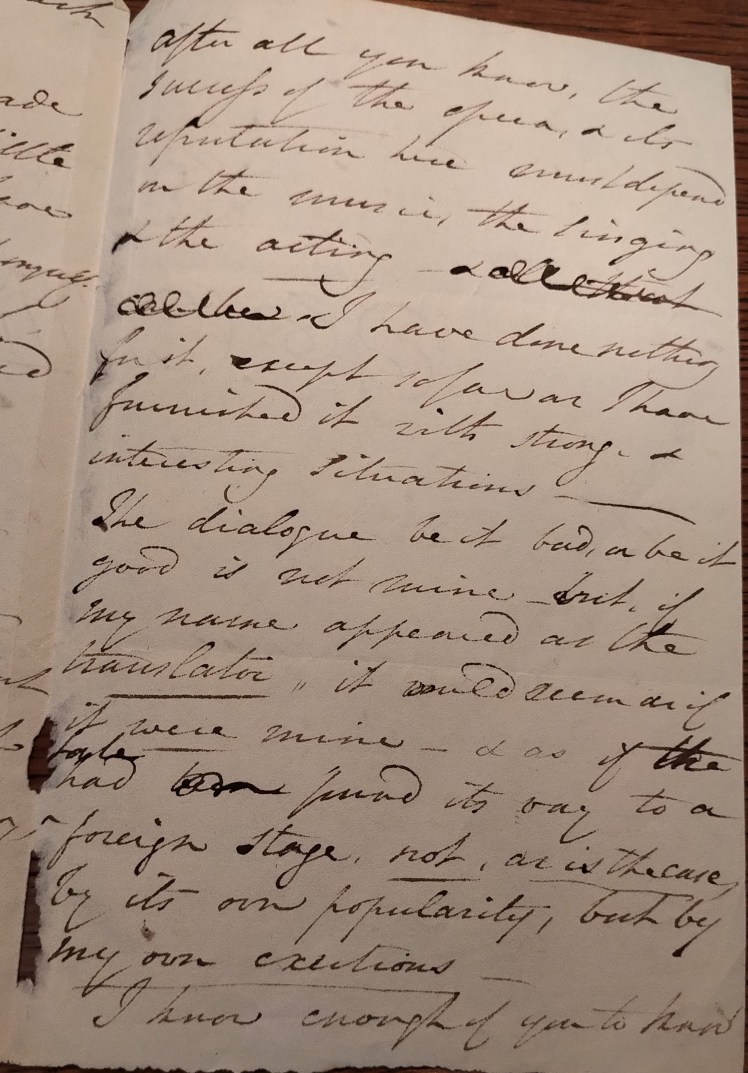 ade
after all you know, the
success of the opera, & its
reputation here must depend
on the music, the singing
& the acting — & all that
& I have done nothing
for it, except so far as I have
furnished it with strong &
interesting situations —
The dialogue be it bad, or be it
good is not mine — but, if
my name appeared as the
translator, it would seem as if
it were mine — & as if the
tale
had been found its way to a
foreign stage, not, as is the case,
by its own popularity, but by
my own exertions —
I know enough of you to know